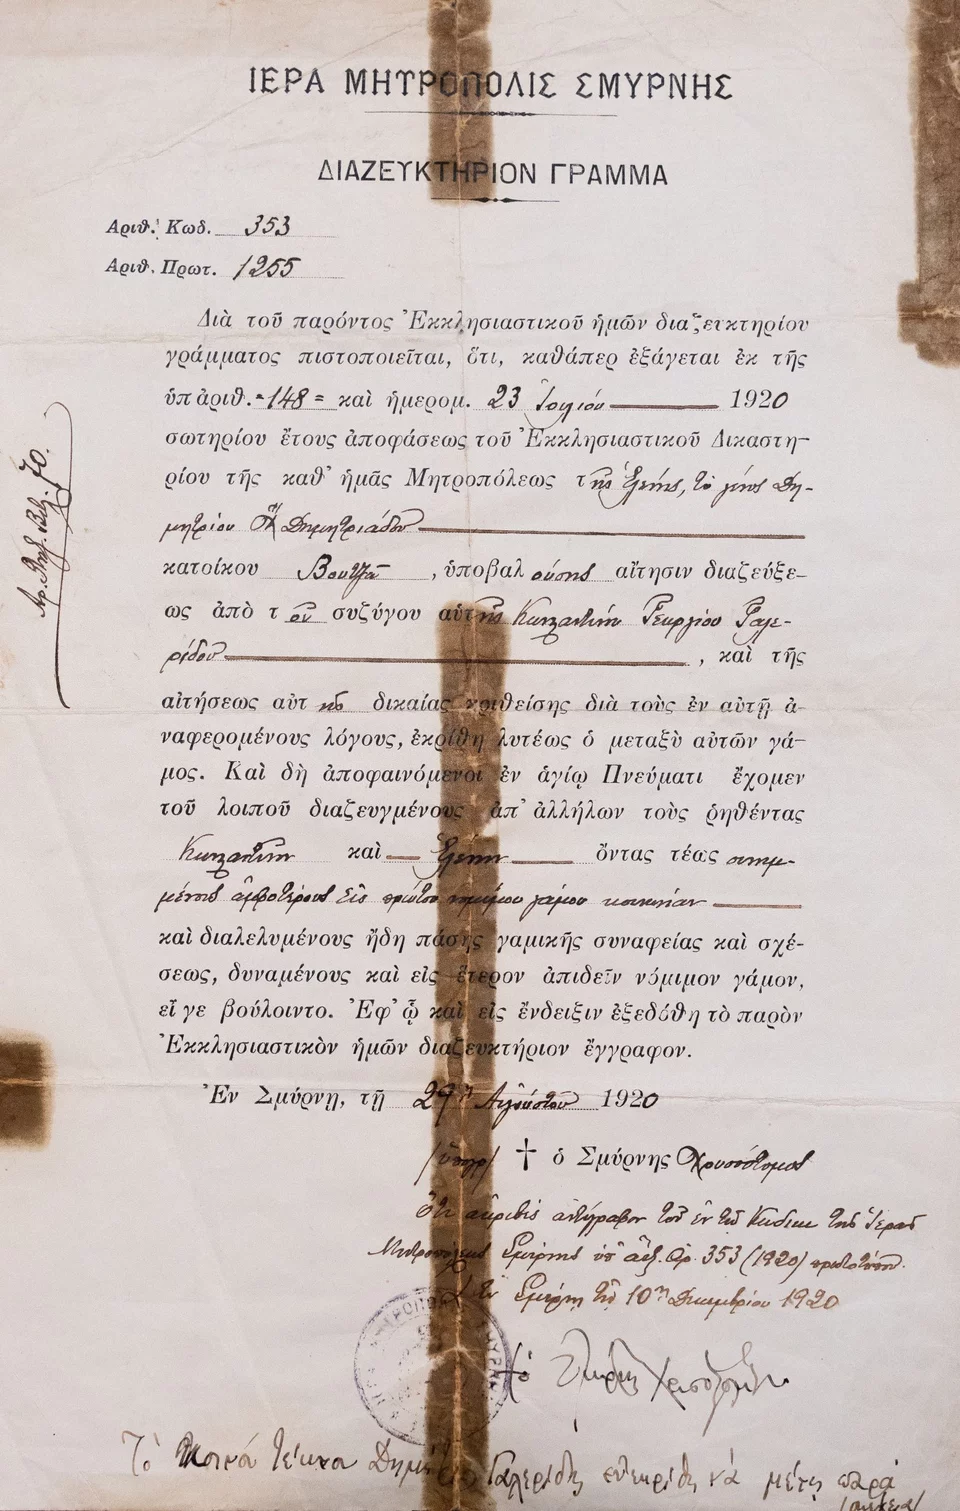 ΙΕΡΑ ΜΗΤΡΟΠΟΛΙΣ ΣΜΥΡΝΗΣ
ΔΙΑΖΕΥΚΤΗΡΙΟΝ ΓΡΑΜΜΑ
Ἀριθ. Κωδ. 353
Ἀριθ. Πρωτ. 1255
Διὰ τοῦ παρόντος Ἐκκλησιαστικοῦ ἡμῶν διαζευκτηρίου
γράμματος πιστοποιεῖται, ὅτι, καθάπερ ἐξάγεται ἐκ τῆς
ὑπ ἀριθ. =148= καὶ ἡμερομ. 23 Ἰουλίου 1920
σωτηρίου ἔτους ἀποφάσεως τοῦ Ἐκκλησιαστικοῦ Δικαστη-
ρίου τῆς καθ' ἡμᾶς Μητροπόλεως τῆς Ἑλένης, τὸ γένος Δη-
μητρίου Δημητριάδου
κατοίκου Βουτζᾶ, ὑποβαλούσης αἴτησιν διαζεύξε-
ως ἀπὸ τοῦ συζύγου αὐτῆς Κωνσταντίνου Γεωργίου Γαλε-
ρίδου, καὶ τῆς
αἰτήσεως αὐτῆς δικαίας κριθείσης διὰ τοὺς ἐν αὐτῇ ἀ-
ναφερομένους λόγους, ἐκρίθη λυτέως ὁ μεταξὺ αὐτῶν γά-
μος. Καὶ δὴ ἀποφαινόμενοι ἐν ἁγίῳ Πνεύματι ἔχομεν
τοῦ λοιποῦ διαζευγμένους ἀπ' ἀλλήλων τοὺς ῥηθέντας
Κωνσταντῖνον καὶ Ἑλένην ὄντας τέως συνημ-
μένους ἀμφοτέρους εἰς πρώτου νομίμου γάμου κοινωνίαν
καὶ διαλελυμένους ἤδη πάσης γαμικῆς συναφείας καὶ σχέ-
σεως, δυναμένους καὶ εἰς ἕτερον ἀπιδεῖν νόμιμον γάμον,
εἴ γε βούλοιντο. Ἐφ' ᾧ καὶ εἰς ἔνδειξιν ἐξεδόθη τὸ παρὸν
Ἐκκλησιαστικὸν ἡμῶν διαζευκτήριον ἔγγραφον.
Ἐν Σμύρνῃ, τῇ 29ῃ Αὐγούστου 1920
(ὑπογρ) † ὁ Σμύρνης Χρυσόστομος
Ὅτι ἀκριβὲς ἀντίγραφον τοῦ ἐν τῷ Κώδικι τῆς Ἱερᾶς
Μητροπόλεως Σμύρνης ὑπ' ἀρ. 353 (1920) πρωτοτύπου.
Ἐν Σμύρνῃ τῇ 10ῃ Δεκεμβρίου 1920
† ὁ Σμύρνης Χρυσόστομος
Τὸ τέκνα Γαλερίδη νὰ μένῃ παρὰ